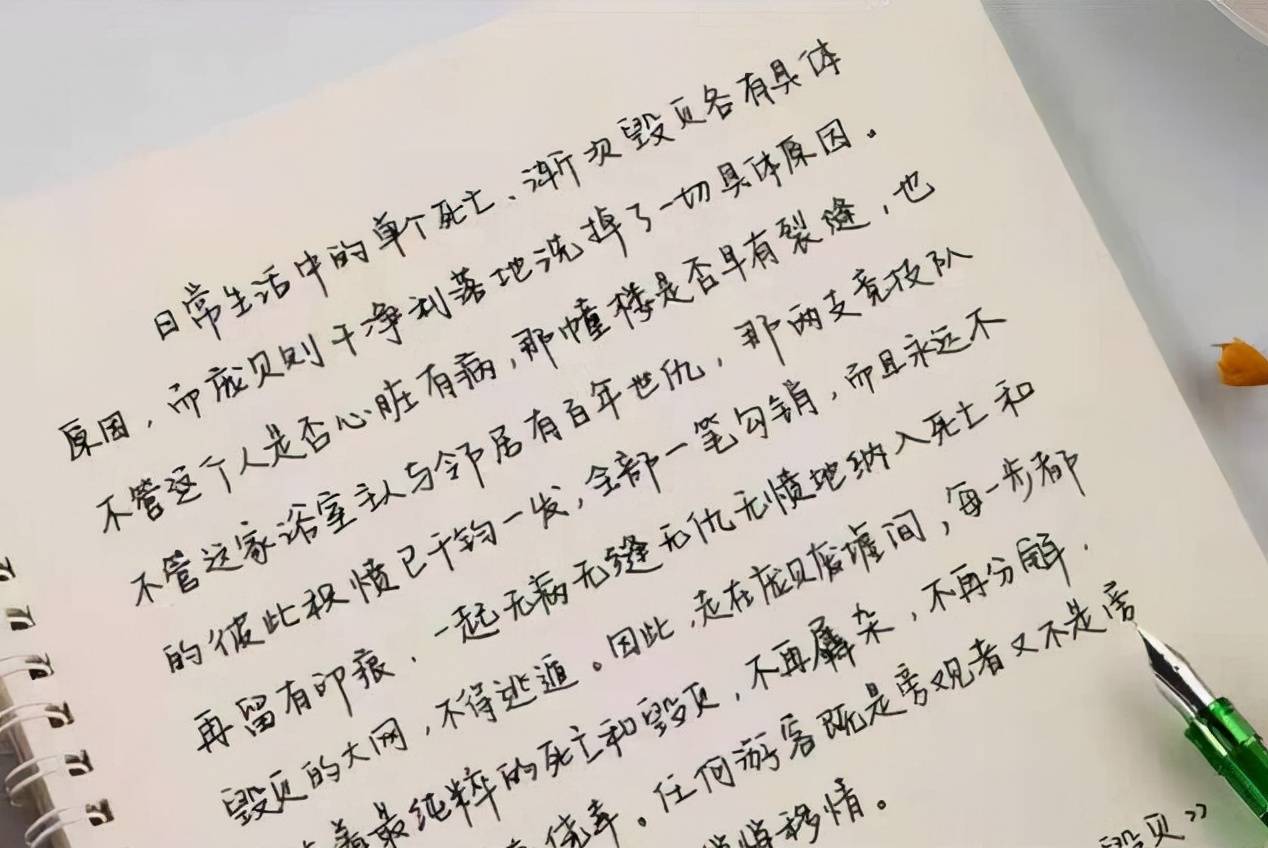 日常生活中的单个死亡、渐次毁页各有具体
原因，而庞贝则干净利落地洗掉了一切具体原因。
不管这个人是否心脏有病，那幢楼是否早有裂缝，也
不管这家浴室主人与邻居有百年世仇，那两支竞技队
的彼此积愤已千钧一发，全部一笔勾销，而且永远不
再留有印痕，一起无病无缝无仇无愤地纳入死亡和
毁页的大网，不得逃遁。因此，走在庞贝废墟间，每一步都
着最纯粹的死亡和毁页，不再羼杂，不再分解，
侥幸。任何游客既是旁观者又不是旁
悄悄移情。
毁页》